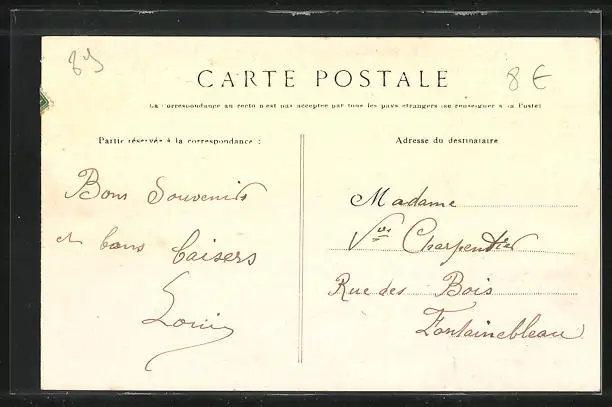 89
8 €
CARTE POSTALE
La Correspondance au recto n'est pas acceptée par tous les pays étrangers (se renseigner à la Poste)
Partie réservée à la correspondance :
Bons Souvenirs
et bons baisers
Louis
Adresse du destinataire
Madame
Vve Charpentier
Rue des Bois
Fontainebleau